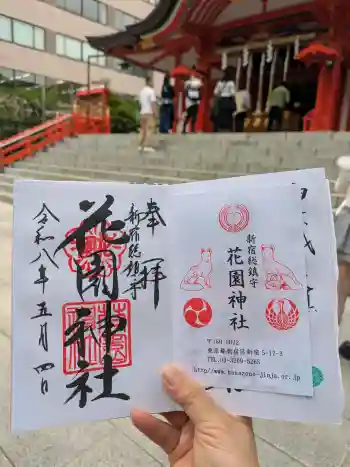 奉拝
新宿総鎮守
花園神社
令和八年五月四日
新宿総鎮守
花園神社
〒160-0022
東京都新宿区新宿5-17-3
TEL.03-3209-5265
http://www.hanazono-jinja.or.jp